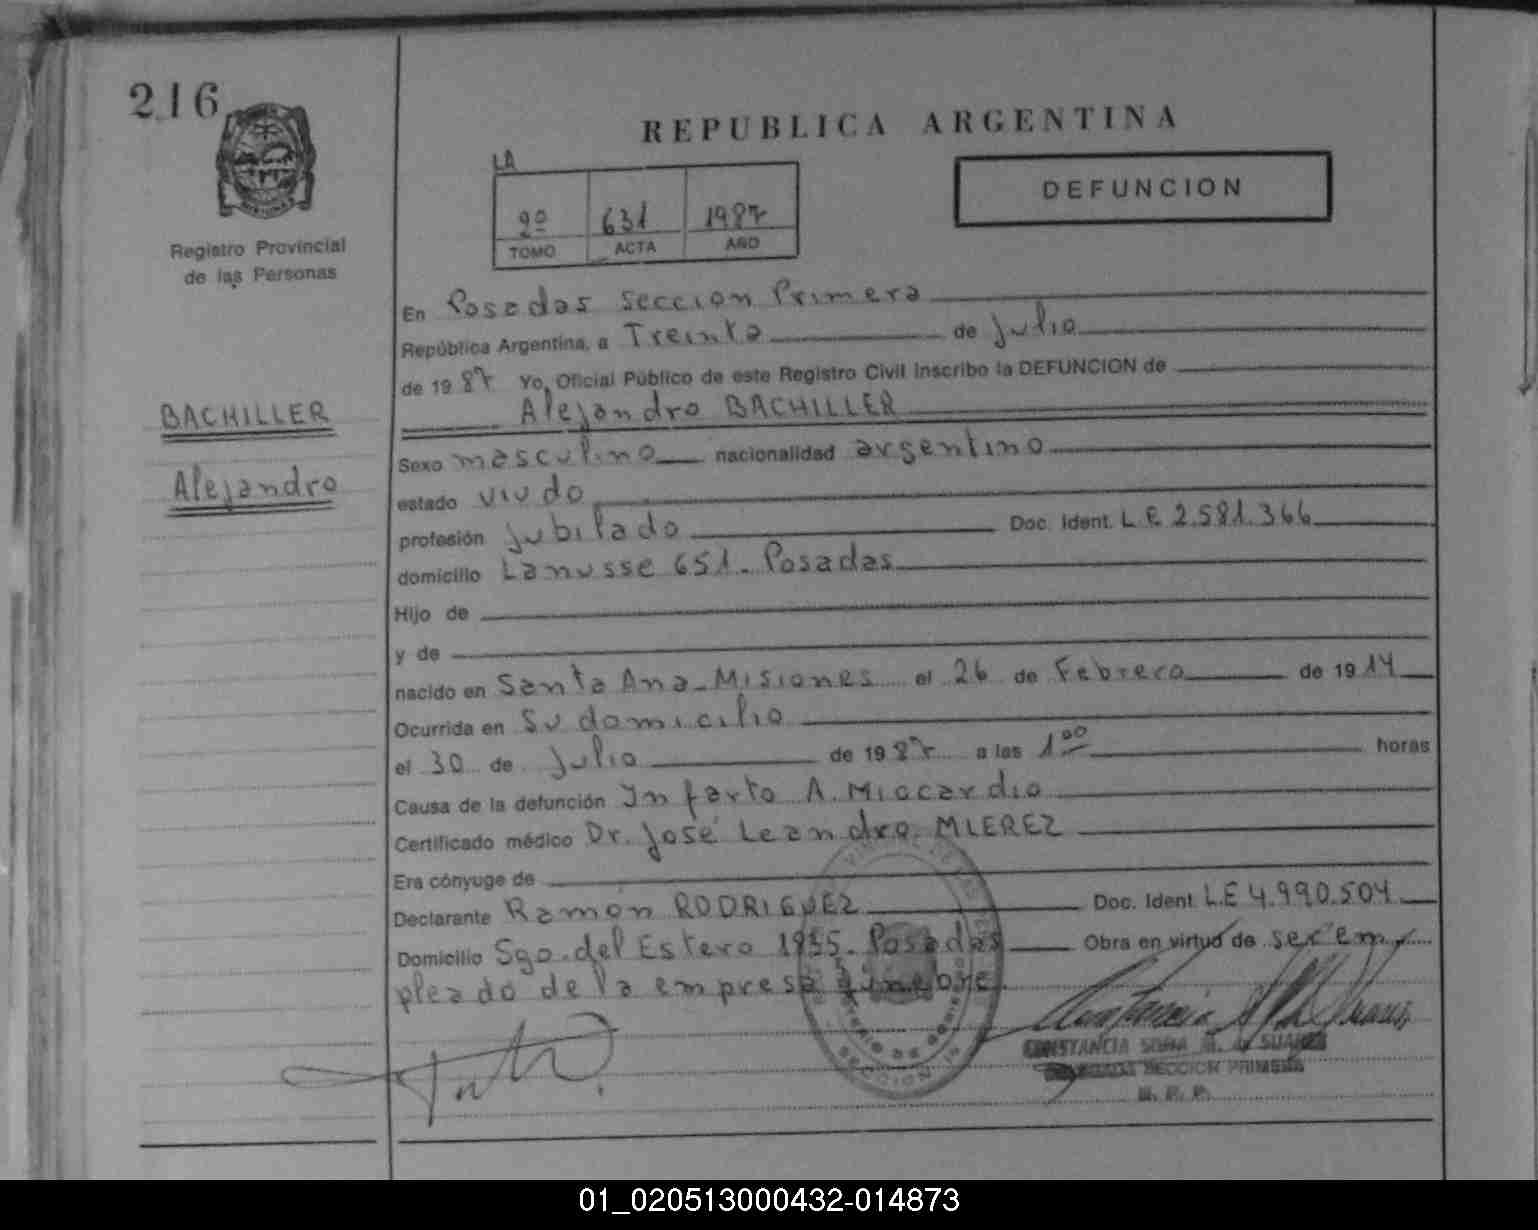 216
REPUBLICA ARGENTINA
LA
2º 631 1987
TOMO ACTA AÑO
DEFUNCION
MISIONES
Registro Provincial
de las Personas
BACHILLER
Alejandro
En Posadas seccion Primera
República Argentina, a Treinta de Julio
de 1987 Yo, Oficial Público de este Registro Civil Inscribo la DEFUNCION de
Alejandro BACHILLER
Sexo masculino nacionalidad argentino
estado viudo
profesión Jubilado Doc. Ident. L E 2.581.366
domicilio Lanusse 651. Posadas
Hijo de
y de
nacido en Santa Ana - Misiones el 26 de Febrero de 1914
Ocurrida en Su domicilio
el 30 de Julio de 1987 a las 1 00 horas
Causa de la defunción Infarto A. Miocardio
Certificado médico Dr. José Leandro MLEREZ
Era cónyuge de
Declarante Ramón RODRIGUEZ Doc. Ident. L.E 4.990.504
Domicilio Sgo. del Estero 1955. Posadas Obra en virtud de ser em
pleado de la empresa fúnebre.
CONSTANCIA SOÑA M. de SUAREZ
DELEGADA SECCION PRIMERA
R. P. P.
01_020513000432-014873